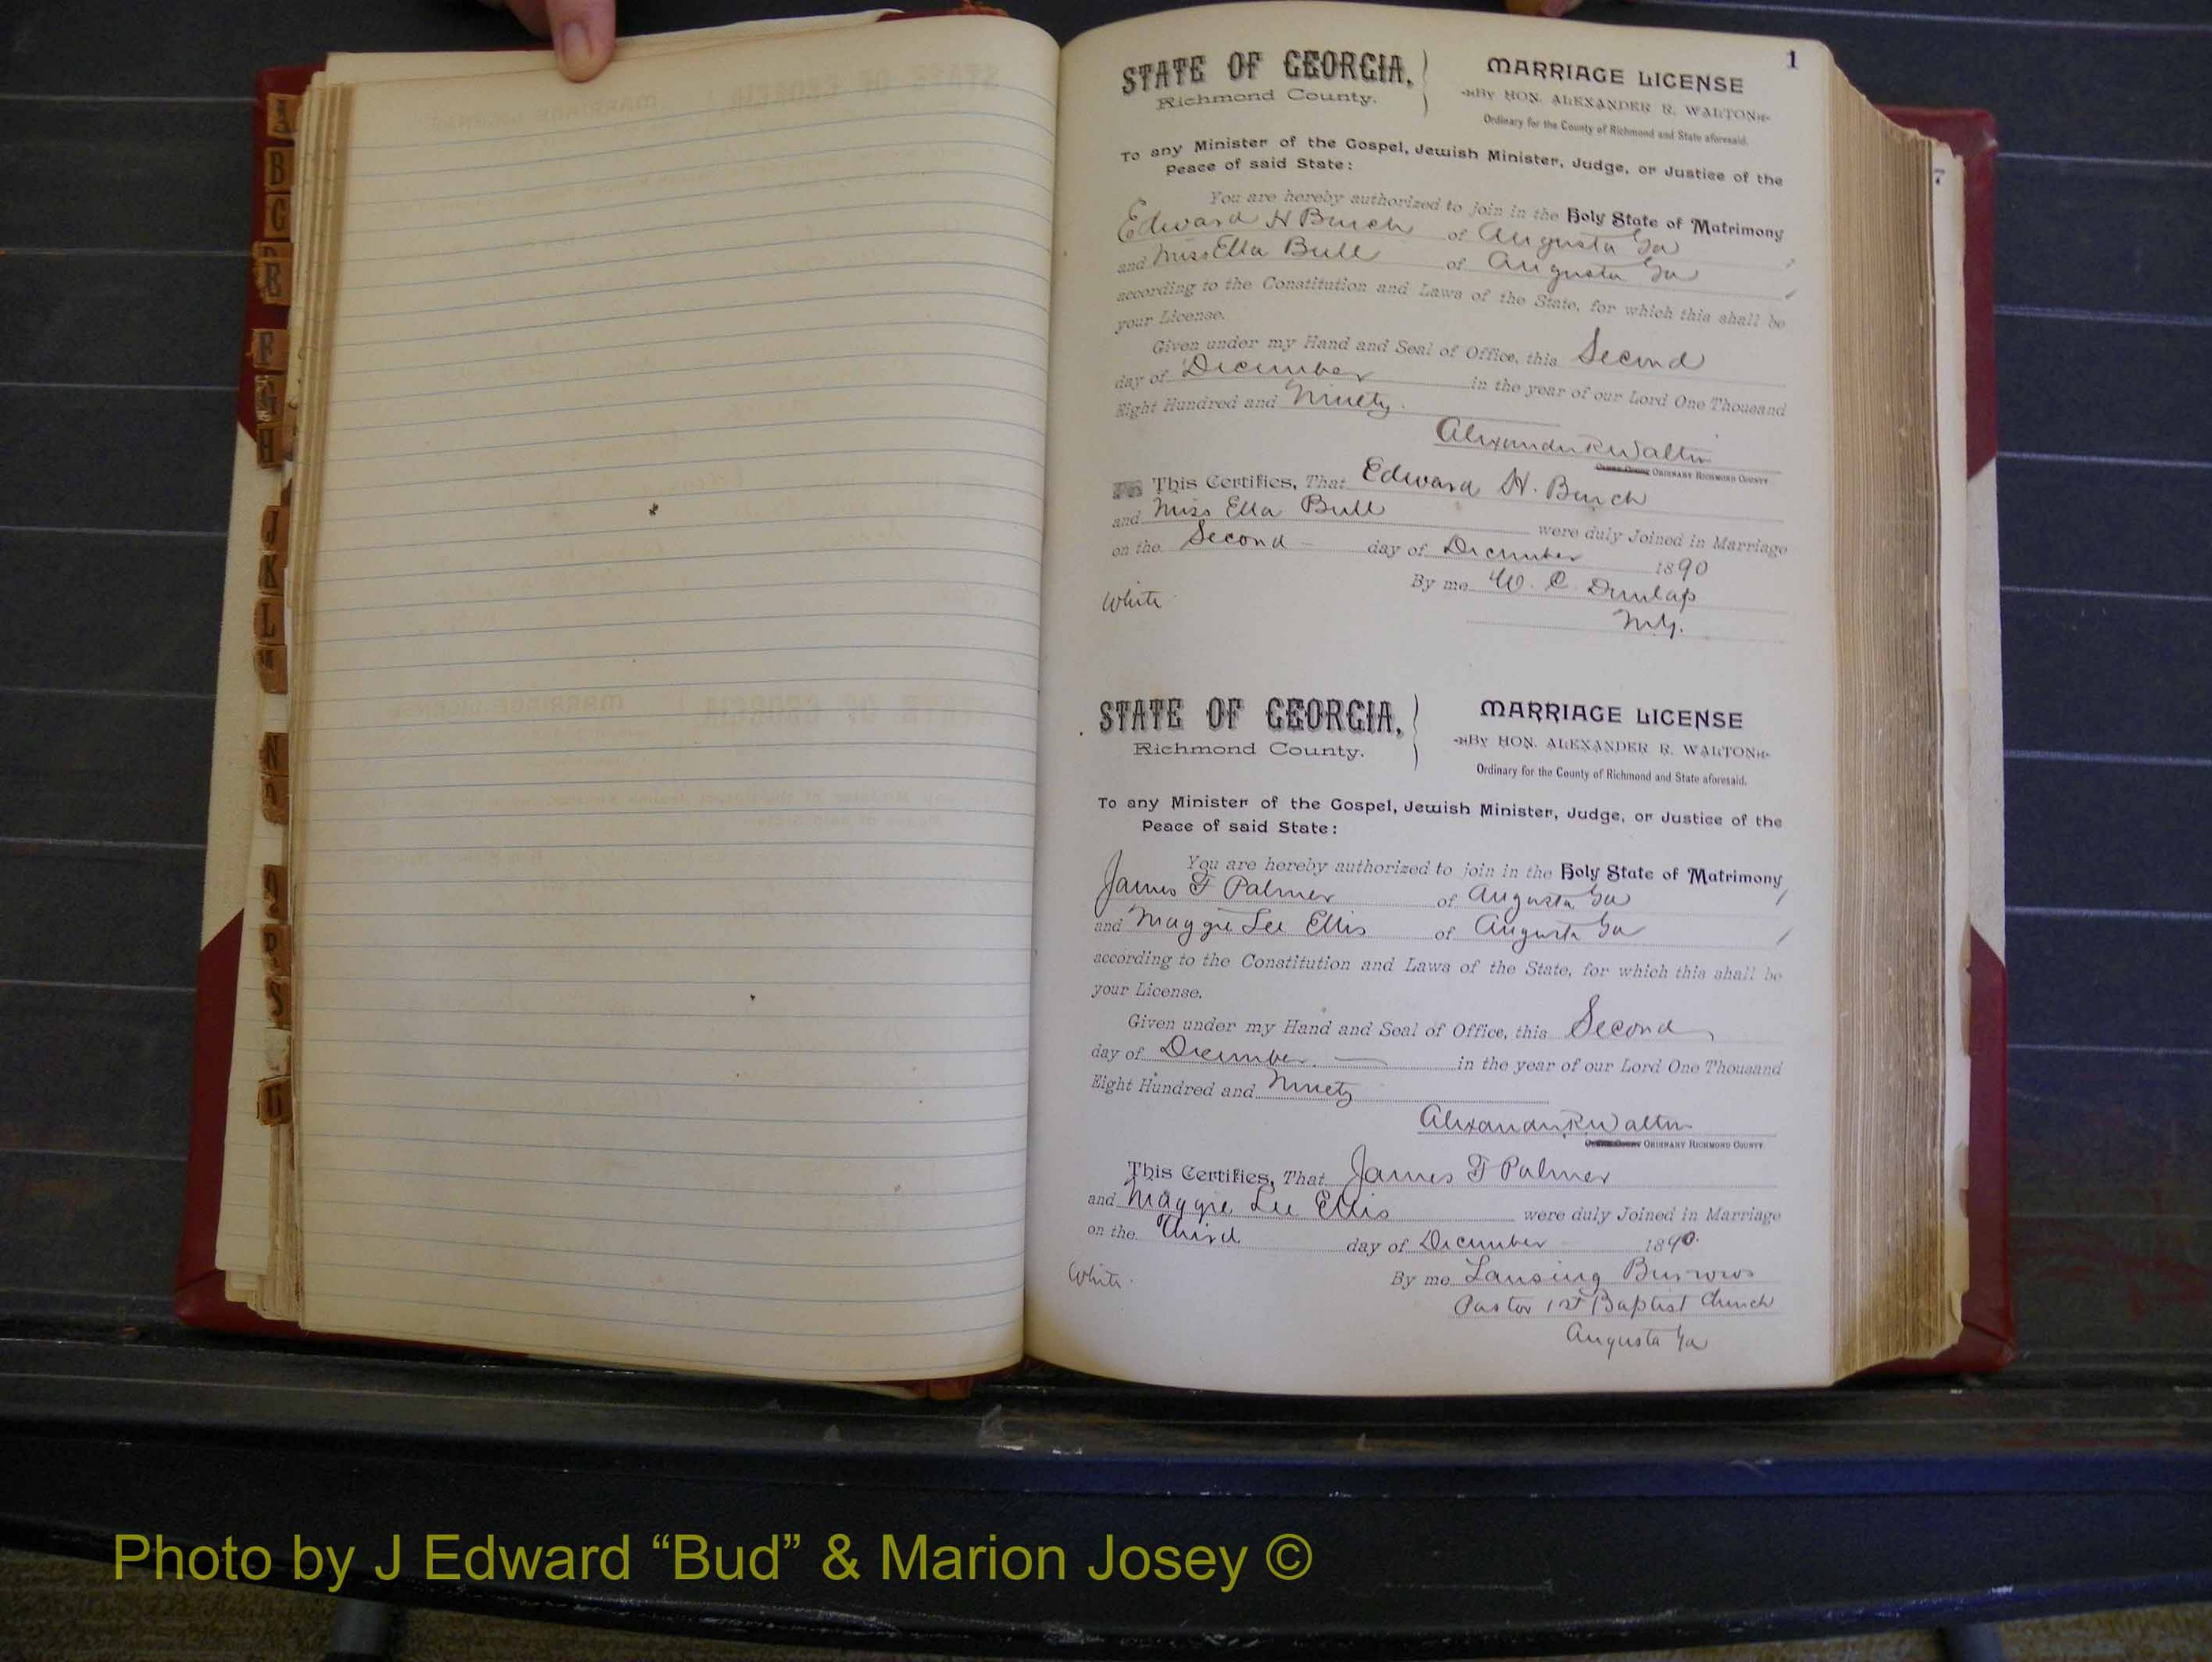 A
B
C
F
G
H
J
K
L
M
N
O
R
S
1
7
STATE OF GEORGIA,
Richmond County.
MARRIAGE LICENSE
By HON. ALEXANDER R. WALTON
Ordinary for the County of Richmond and State aforesaid.
To any Minister of the Gospel, Jewish Minister, Judge, or Justice of the
Peace of said State:
You are hereby authorized to join in the Holy State of Matrimony
Edward H Burch of Augusta Ga
and Miss Ella Bull of Augusta Ga
according to the Constitution and Laws of the State, for which this shall be
your License.
Given under my Hand and Seal of Office, this Second
day of December in the year of our Lord One Thousand
Eight Hundred and Ninety.
Alexander R Walton
ORDINARY RICHMOND COUNTY
This Certifies, That Edward H. Burch
and Miss Ella Bull were duly Joined in Marriage
on the Second day of December 1890
By me W. C. Dunlap
White
M.G.
STATE OF GEORGIA,
Richmond County.
MARRIAGE LICENSE
By HON. ALEXANDER R. WALTON
Ordinary for the County of Richmond and State aforesaid.
To any Minister of the Gospel, Jewish Minister, Judge, or Justice of the
Peace of said State:
You are hereby authorized to join in the Holy State of Matrimony
James F Palmer of Augusta Ga
and Maggie Lee Ellis of Augusta Ga
according to the Constitution and Laws of the State, for which this shall be
your License.
Given under my Hand and Seal of Office, this Second
day of December in the year of our Lord One Thousand
Eight Hundred and Ninety
Alexander R Walton
ORDINARY RICHMOND COUNTY
This Certifies, That James F Palmer
and Maggie Lee Ellis were duly Joined in Marriage
on the Third day of December 1890.
By me Lansing Burrows
White.
Pastor 1st Baptist Church
Augusta Ga
Photo by J Edward “Bud” & Marion Josey ©